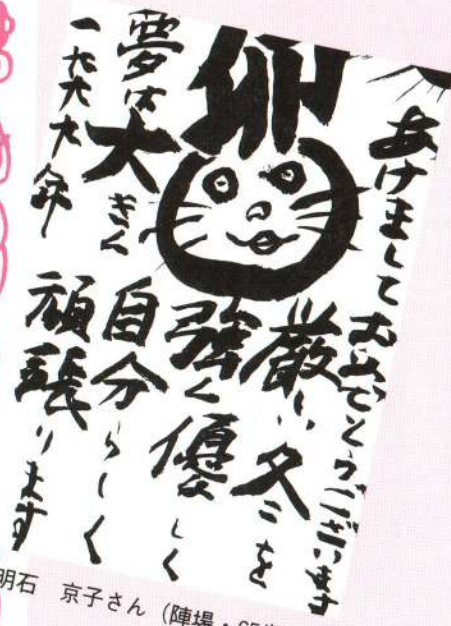 あけましておめでとうございます
卯
厳しい冬を
強く優しく
自分らしく
頑張ります
夢は大きく
一九九九年
明石 京子さん（陣場・65